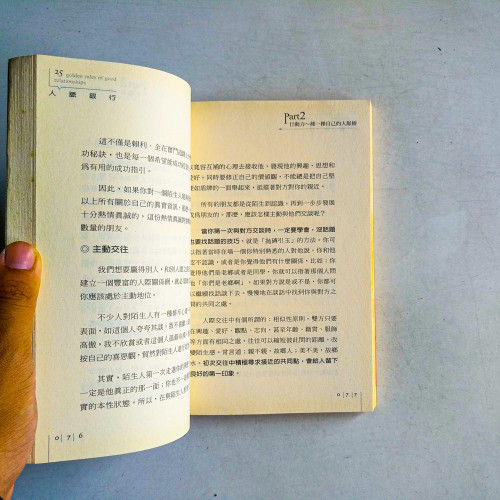 25 golden rules of good
relationships
人脈銀行
這不僅是賴利．金在奮鬥
功秘訣，也是每一個希望能成功
為有用的成功指引。
因此，如果你對一個陌生人
以上所有關於自己的真實資訊，
十分熱情真誠的，這份熱情真誠
數量的朋友。
◎主動交往
我們想要贏得別人，和別人建立
建立一個豐富的人際關係網，
你應該處於主動地位。
不少人對陌生人有一種
表面，如這個人夸夸其談，我不喜歡
高傲，我不欣賞或者這個
按自己的喜惡觀，貿然對陌生人進行
其實，陌生人第一次走進你的
一定是他真正的那一面；你也不
實的本性狀態。所以，在與陌生
0|7|6
Part2
行動力～種一棵自己的人脈樹
寬容互補的心理去接收他，發現他的興趣、思想和
愛好，同時要修正自己的價值觀，不能總是把自己堅
硬如盾牌的一面舉起來，阻擋著對方對你的親近。
所有的朋友都是從陌生到認識，再到一步步發展
成為朋友的，那麼，應該怎樣主動與他們交談呢？
當你第一次與對方交談時，一定要學會，沒話題
也要找話題的技巧，就是「拋磚引玉」的方法。你可以
附著當前時在場一個你特別熟悉的人對他說，你和他
不認識，或者是你覺得他們有什麼關係，比如：你
覺得他們是老鄉或者是同學，你就可以指著那個人問
他「你們是老鄉啊」，如果對方說是或不是，你都可
以繼續找話談下去，慢慢地在談話中找到你與對方之
間的共同之處。
人際交往中有個所謂的：相似性原則。雙方只要
在興趣、愛好、觀點、志向，甚至年齡、籍貫、服飾
等方面有相似之處，往往可以縮短彼此間的距離，改
變陌生感。常言道：親不親，故鄉人；美不美，故鄉
水。初次交往中積極尋求接近的共同點，會給人留下
良好的第一印象。
0|7|7